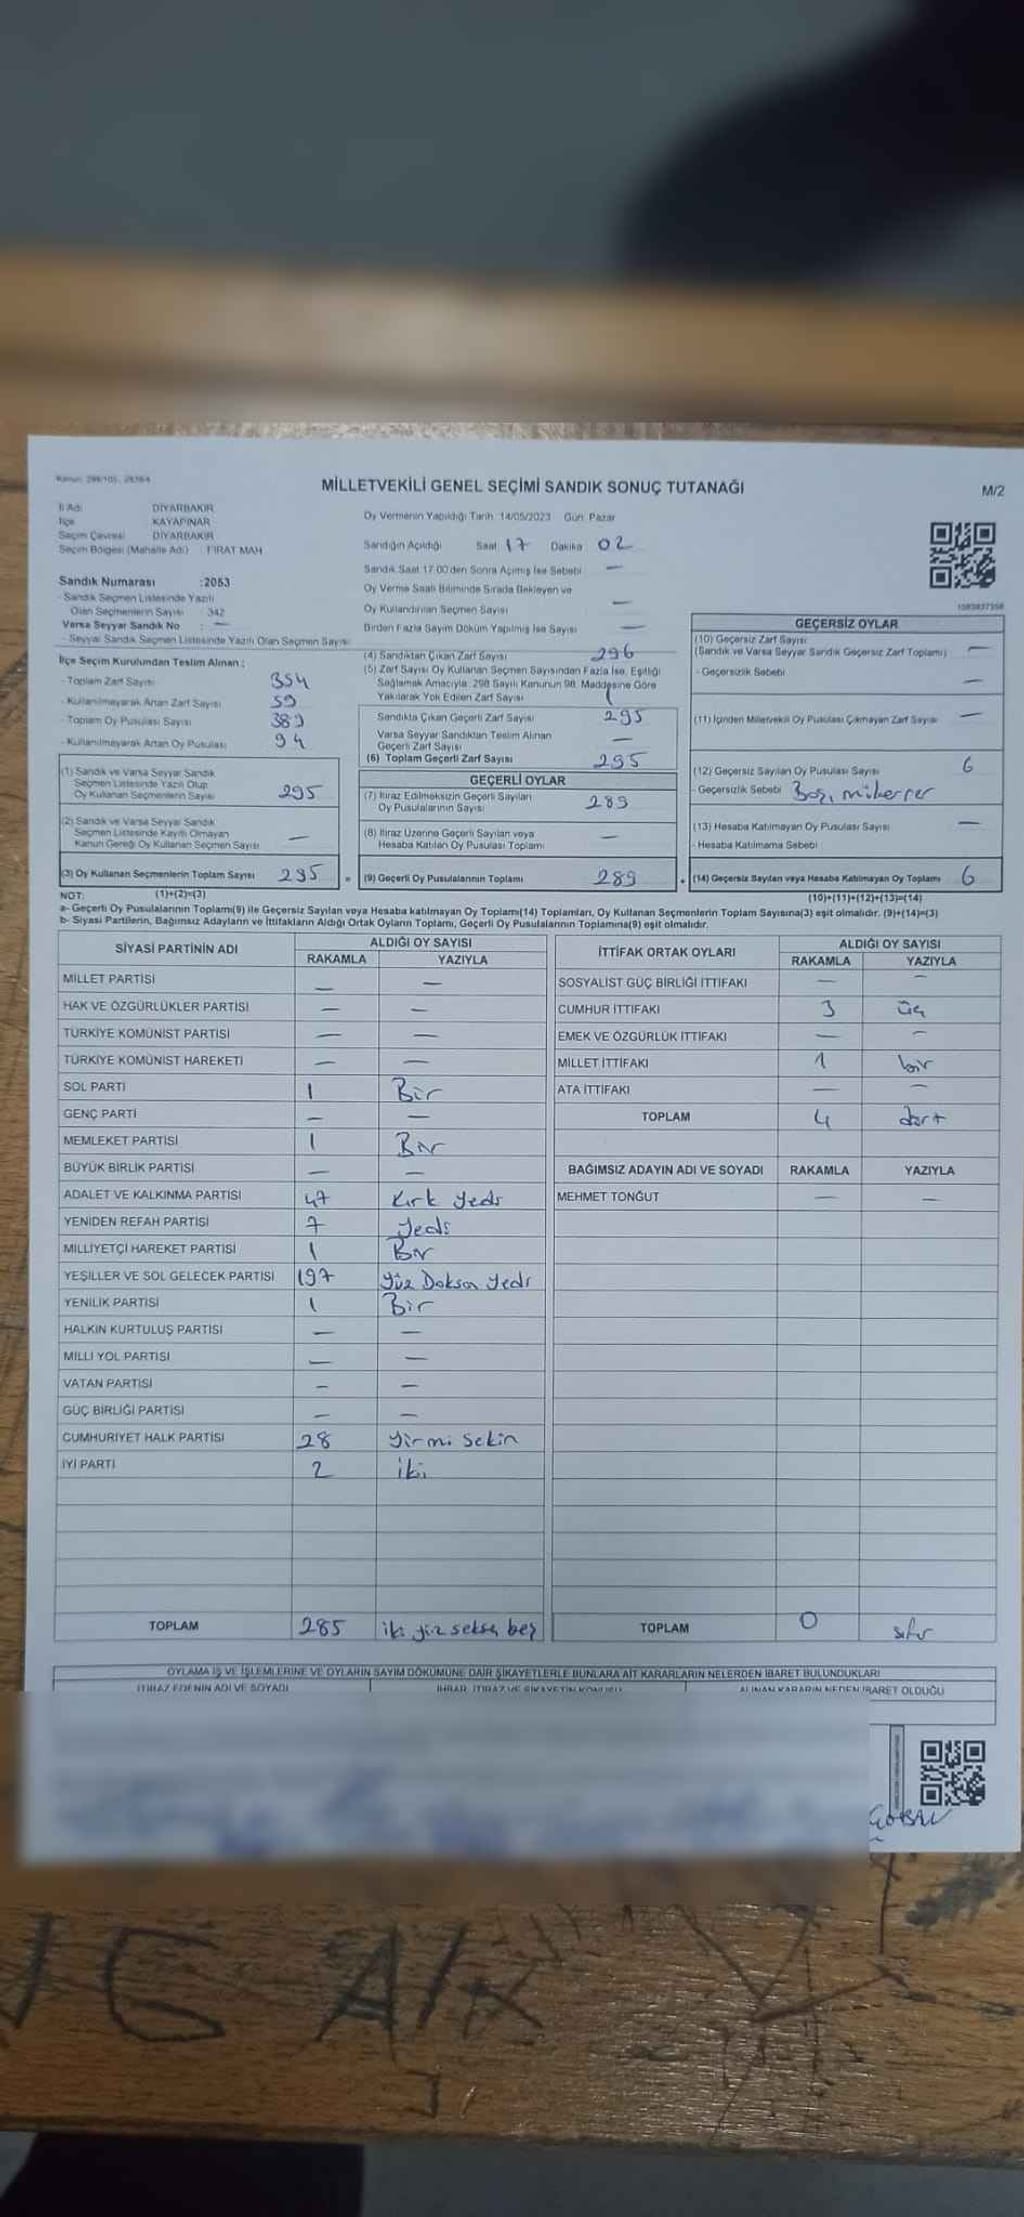 MİLLETVEKİLİ GENEL SEÇİMİ SANDIK SONUÇ TUTANAĞI
M/2
İl Adı DİYARBAKIR
İlçe KAYAPINAR
Seçim Çevresi DİYARBAKIR
Seçim Bölgesi (Mahalle Adı) FIRAT MAH
Sandık Numarası :2053
- Sandık Seçmen Listesinde Yazılı
Olan Seçmenlerin Sayısı 342
Varsa Seyyar Sandık No : —
- Seyyar Sandık Seçmen Listesinde Yazılı Olan Seçmen Sayısı
Oy Vermenin Yapıldığı Tarih 14/05/2023 Gün: Pazar
Sandığın Açıldığı Saat 17 Dakika 02
Sandık Saat 17:00'den Sonra Açımış İse Sebebi —
Oy Verme Saati Bitiminde Sırada Bekleyen ve
Oy Kullandırılan Seçmen Sayısı —
Birden Fazla Sayım Döküm Yapılmış İse Sayısı —
İlçe Seçim Kurulundan Teslim Alınan ;
- Toplam Zarf Sayısı 354
- Kullanılmayarak Artan Zarf Sayısı 59
- Toplam Oy Pusulası Sayısı 389
- Kullanılmayarak Artan Oy Pusulası 94
(1) Sandık ve Varsa Seyyar Sandık
Seçmen Listesinde Yazılı Olup
Oy Kullanan Seçmenlerin Sayısı 295
(2) Sandık ve Varsa Seyyar Sandık
Seçmen Listesinde Kayıtlı Olmayan
Kanun Gereği Oy Kullanan Seçmen Sayısı —
(3) Oy Kullanan Seçmenlerin Toplam Sayısı 295 =
(4) Sandıktan Çıkan Zarf Sayısı 296
(5) Zarf Sayısı Oy Kullanan Seçmen Sayısından Fazla İse, Eşitliği
Sağlamak Amacıyla, 298 Sayılı Kanunun 98. Maddesine Göre
Yakılarak Yok Edilen Zarf Sayısı 1
Sandıkta Çıkan Geçerli Zarf Sayısı 295
Varsa Seyyar Sandıktan Teslim Alınan
Geçerli Zarf Sayısı —
(6) Toplam Geçerli Zarf Sayısı 295
GEÇERLİ OYLAR
(7) İtiraz Edilmeksizin Geçerli Sayılan
Oy Pusulalarının Sayısı 289
(8) İtiraz Üzerine Geçerli Sayılan veya
Hesaba Katılan Oy Pusulası Toplamı —
(9) Geçerli Oy Pusulalarının Toplamı 289 +
GEÇERSİZ OYLAR
(10) Geçersiz Zarf Sayısı
(Sandık ve Varsa Seyyar Sandık Geçersiz Zarf Toplamı) —
- Geçersizlik Sebebi —
(11) İçinden Milletvekili Oy Pusulası Çıkmayan Zarf Sayısı —
(12) Geçersiz Sayılan Oy Pusulası Sayısı 6
- Geçersizlik Sebebi Boş, mükerrer
(13) Hesaba Katılmayan Oy Pusulası Sayısı —
- Hesaba Katılmama Sebebi
(14) Geçersiz Sayılan veya Hesaba Katılmayan Oy Toplamı 6
NOT: (1)+(2)=(3) (10)+(11)+(12)+(13)=(14)
a- Geçerli Oy Pusulalarının Toplamı(9) ile Geçersiz Sayılan veya Hesaba katılmayan Oy Toplamı(14) Toplamları, Oy Kullanan Seçmenlerin Toplam Sayısına(3) eşit olmalıdır. (9)+(14)=(3)
b- Siyasi Partilerin, Bağımsız Adayların ve İttifakların Aldığı Ortak Oyların Toplamı, Geçerli Oy Pusulalarının Toplamına(9) eşit olmalıdır.
SİYASİ PARTİNİN ADI ALDIĞI OY SAYISI
RAKAMLA YAZIYLA
MİLLET PARTİSİ — —
HAK VE ÖZGÜRLÜKLER PARTİSİ — —
TÜRKİYE KOMÜNİST PARTİSİ — —
TÜRKİYE KOMÜNİST HAREKETİ — —
SOL PARTİ 1 Bir
GENÇ PARTİ — —
MEMLEKET PARTİSİ 1 Bir
BÜYÜK BİRLİK PARTİSİ — —
ADALET VE KALKINMA PARTİSİ 47 Kırk yedi
YENİDEN REFAH PARTİSİ 7 Yedi
MİLLİYETÇİ HAREKET PARTİSİ 1 Bir
YEŞİLLER VE SOL GELECEK PARTİSİ 197 Yüz Doksan Yedi
YENİLİK PARTİSİ 1 Bir
HALKIN KURTULUŞ PARTİSİ — —
MİLLİ YOL PARTİSİ — —
VATAN PARTİSİ — —
GÜÇ BİRLİĞİ PARTİSİ — —
CUMHURİYET HALK PARTİSİ 28 Yirmi Sekin
İYİ PARTİ 2 iki
TOPLAM 285 iki yüz seksen beş
İTTİFAK ORTAK OYLARI ALDIĞI OY SAYISI
RAKAMLA YAZIYLA
SOSYALİST GÜÇ BİRLİĞİ İTTİFAKI — —
CUMHUR İTTİFAKI 3 üç
EMEK VE ÖZGÜRLÜK İTTİFAKI — —
MİLLET İTTİFAKI 1 bir
ATA İTTİFAKI — —
TOPLAM 4 dört
BAĞIMSIZ ADAYIN ADI VE SOYADI RAKAMLA YAZIYLA
MEHMET TONĞUT — —
TOPLAM 0 sıfır
OYLAMA İŞ VE İŞLEMLERİNE VE OYLARIN SAYIM DÖKÜMÜNE DAİR ŞİKAYETLERLE BUNLARA AİT KARARLARIN NELERDEN İBARET BULUNDUKLARI
İTİRAZ EDENİN ADI VE SOYADI İHBAR, İTİRAZ VE ŞİKAYETİN KONUSU ALINAN KARARIN NEDEN İBARET OLDUĞU